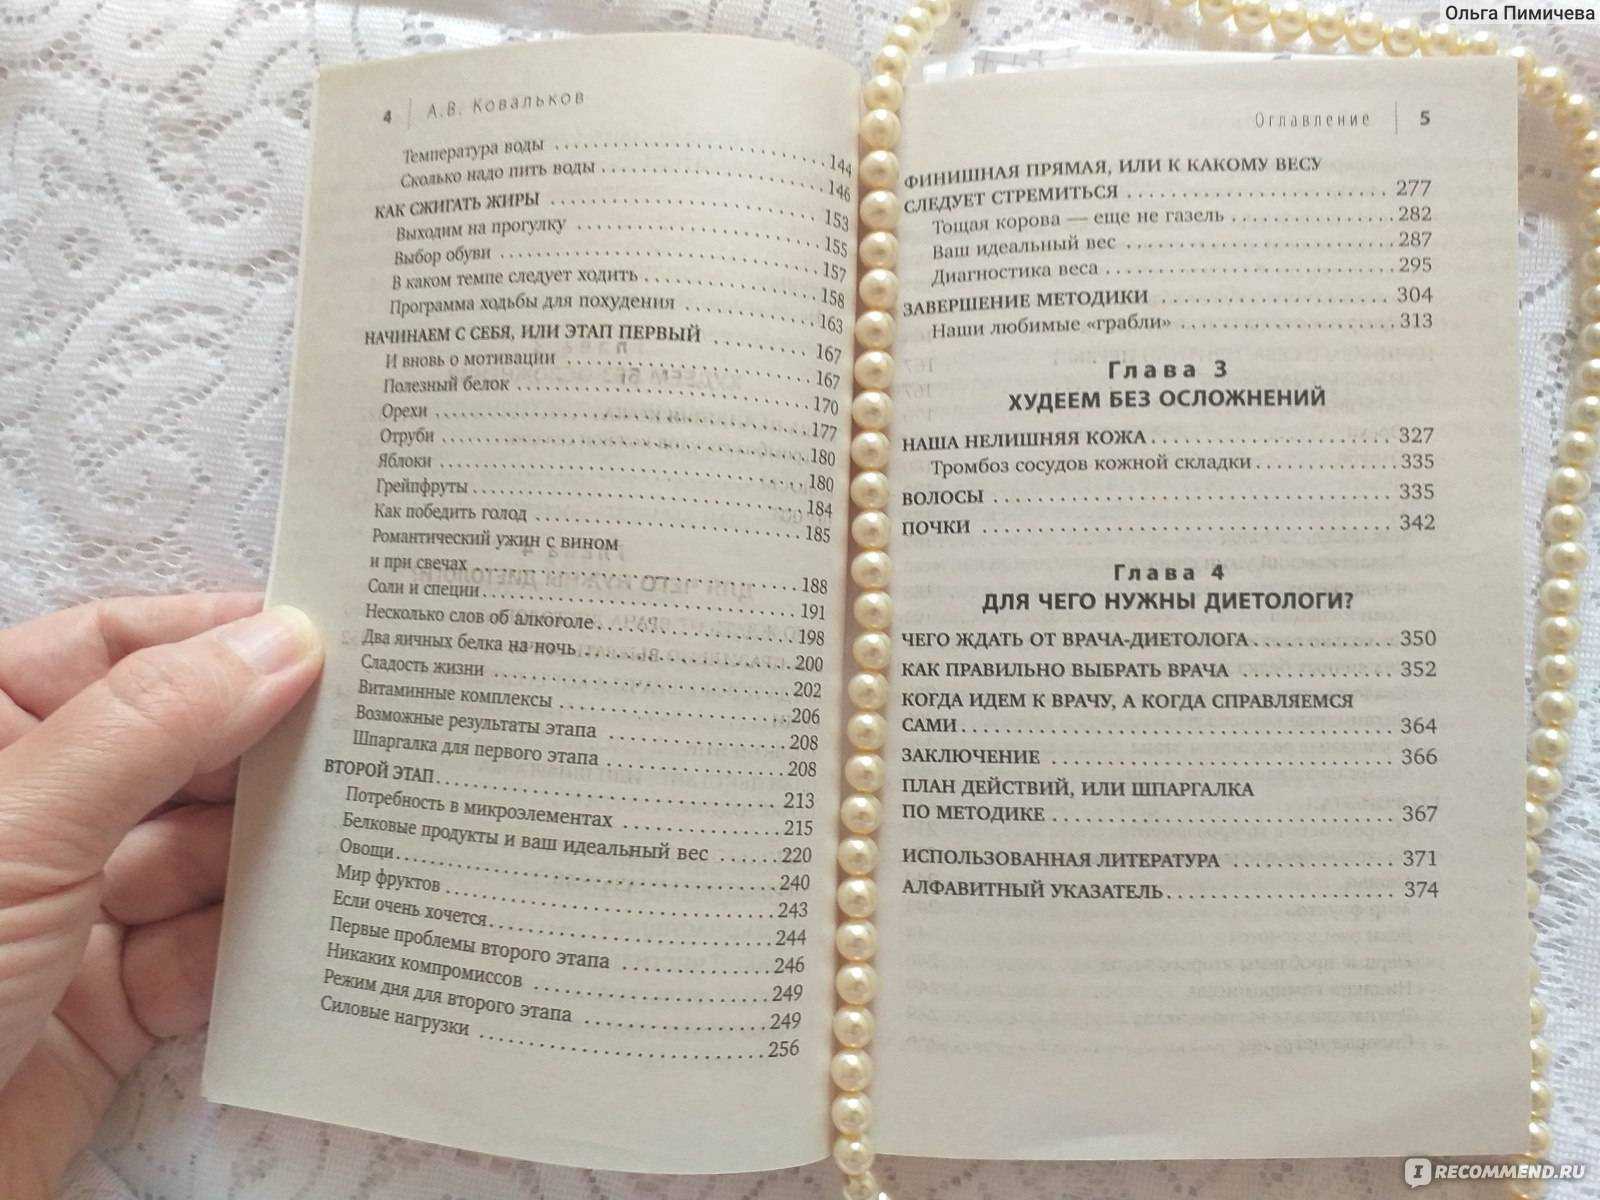 Ольга Пимичева
4 | А.В. Ковальков
Температура воды ........ 144
Сколько надо пить воды ........ 146
КАК СЖИГАТЬ ЖИРЫ ........ 153
Выходим на прогулку ........ 155
Выбор обуви ........ 157
В каком темпе следует ходить ........ 158
Программа ходьбы для похудения ........ 163
НАЧИНАЕМ С СЕБЯ, ИЛИ ЭТАП ПЕРВЫЙ ........ 167
И вновь о мотивации ........ 167
Полезный белок ........ 170
Орехи ........ 177
Отруби ........ 180
Яблоки ........ 180
Грейпфруты ........ 184
Как победить голод ........ 185
Романтический ужин с вином
и при свечах ........ 188
Соли и специи ........ 191
Несколько слов об алкоголе ........ 198
Два яичных белка на ночь ........ 200
Сладость жизни ........ 202
Витаминные комплексы ........ 206
Возможные результаты этапа ........ 208
Шпаргалка для первого этапа ........ 208
ВТОРОЙ ЭТАП ........ 213
Потребность в микроэлементах ........ 215
Белковые продукты и ваш идеальный вес ........ 220
Овощи ........ 240
Мир фруктов ........ 243
Если очень хочется ........ 244
Первые проблемы второго этапа ........ 246
Никаких компромиссов ........ 249
Режим дня для второго этапа ........ 249
Силовые нагрузки ........ 256
Оглавление | 5
ФИНИШНАЯ ПРЯМАЯ, ИЛИ К КАКОМУ ВЕСУ
СЛЕДУЕТ СТРЕМИТЬСЯ ........ 277
Тощая корова — еще не газель ........ 282
Ваш идеальный вес ........ 287
Диагностика веса ........ 295
ЗАВЕРШЕНИЕ МЕТОДИКИ ........ 304
Наши любимые «грабли» ........ 313
Глава 3
ХУДЕЕМ БЕЗ ОСЛОЖНЕНИЙ
НАША НЕЛИШНЯЯ КОЖА ........ 327
Тромбоз сосудов кожной складки ........ 335
ВОЛОСЫ ........ 335
ПОЧКИ ........ 342
Глава 4
ДЛЯ ЧЕГО НУЖНЫ ДИЕТОЛОГИ?
ЧЕГО ЖДАТЬ ОТ ВРАЧА-ДИЕТОЛОГА ........ 350
КАК ПРАВИЛЬНО ВЫБРАТЬ ВРАЧА ........ 352
КОГДА ИДЕМ К ВРАЧУ, А КОГДА СПРАВЛЯЕМСЯ
САМИ ........ 364
ЗАКЛЮЧЕНИЕ ........ 366
ПЛАН ДЕЙСТВИЙ, ИЛИ ШПАРГАЛКА
ПО МЕТОДИКЕ ........ 367
ИСПОЛЬЗОВАННАЯ ЛИТЕРАТУРА ........ 371
АЛФАВИТНЫЙ УКАЗАТЕЛЬ ........ 374
IRECOMMEND.RU